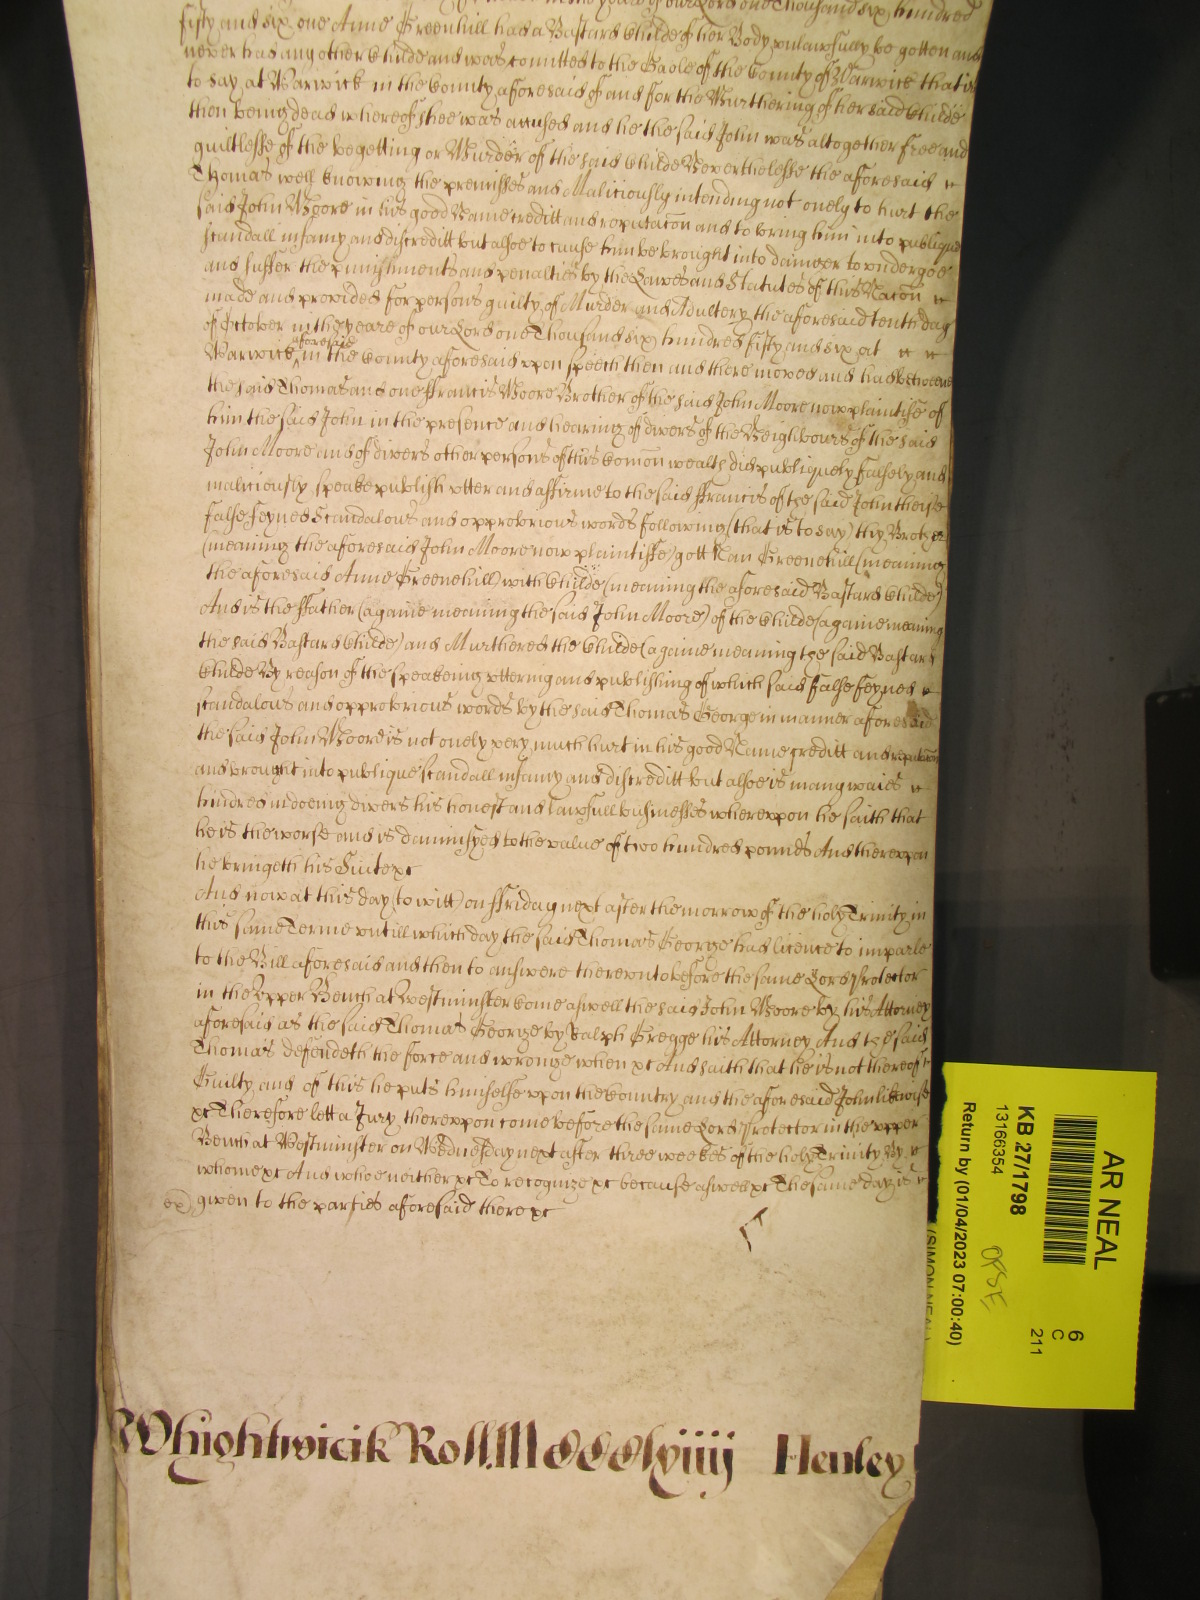 in the yeare of our Lord one Thousand six hundred
fifty and six one Anne Greenhill had a Bastard Childe of her Body unlawfully be gotten and
never had any other Childe and was comitted to the Gaole of the County of Warwick that is
to say at Warwick in the County aforesaid of and for the Murthering of her said Childe
then being dead whereof shee was accused and he the said John was altogether free and
guiltlesse of the begetting or Murder of the said Childe Neverthelesse the aforesaid
Thomas well knowing the premisses and Maliciously intending not onely to hurt the
said John Moore in his good Name creditt and reputacon and to bring him into publique
scandall infamy and discreditt but alsoe to cause him be brought into daunger to undergoe
and suffer the punishments and penalties by the Lawes and Statutes of this Nacon
made and provided for persons guilty of Murder and Adultery the aforesaid tenth day
of October in the yeare of our Lord one Thousand six hundred fifty and six at
Warwick aforesaid in the County aforesaid upon speech then and there moved and had betweene
the said Thomas and one Francis Moore Brother of the said John Moore now plaintife of
him the said John in the presence and hearing of divers of the Neighbours of the said
John Moore and of divers other persons of this Comon wealth did publiquely falsely and
maliciously speake publish utter and affirme to the said Francis of the said John theise
false feyned Scandalous and opprobrious words following (that is to say) thy Brother
(meaning the aforesaid John Moore now plaintiffe) gott Nan Greenehill (meaning
the aforesaid Anne Greenehill) with Childe (meaning the aforesaid Bastard Childe)
And is the Father (againe meaning the said John Moore) of the Childe (againe meaning
the said Bastard Childe) and Murthered the Childe (againe meaning the said Bastard
Childe By reason of the speakeing uttering and publishing of which said false feyned
scandalous and opprobrious words by the said Thomas George in manner aforesaid
the said John Moore is not onely very much hurt in his good Name creditt and reputacon
and brought into publique scandall infamy and discreditt but alsoe is many waies
hindred in doeing divers his honest and lawfull businesses whereupon he saith that
he is the worse and is damnifyed to the value of two hundred pounds And thereupon
he bringeth his Suite &c
And now at this day (to witt) on Friday next after the morrow of the holy Trinity in
this same Terme untill which day the said Thomas George had licence to imparle
to the Bill aforesaid and then to answere thereunto before the same Lord Protector
in the Upper Bench at Westminster Come aswell the said John Moore by his Attorney
aforesaid as the said Thomas George by Ralph Gregge his Attorney And the said
Thomas defendeth the force and wronge when &c And saith that he is not thereof
Guilty and of this he puts himselfe upon the Country and the aforesaid John likewise
&c Therefore lett a Jury thereupon come before the same Lord Protector in the upper
Bench at Westminster on Wednesday next after three weekes of the holy Trinity By
whome &c And whoe neither &c To recognize &c because aswell &c The same day is
given to the parties aforesaid there &c
Whightwicik Roll. Mdccclxiiij Henley
AR NEAL
6
C
211
KB 27/1798
13166354
Return by (01/04/2023 07:00:40)
(SIMON NEAL)